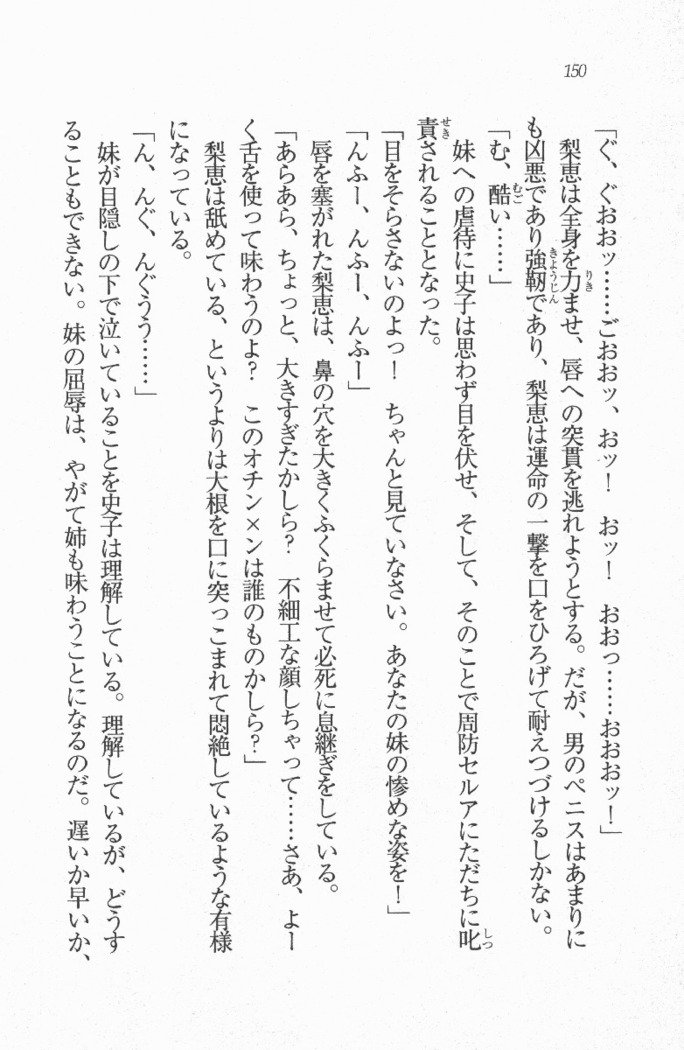 150
「ぐ、ぐおおッ……ごおおッ、おッ！　おッ！　おおっ……おおおッ！」
梨恵は全身を力ませ、唇への突貫を逃れようとする。だが、男のペニスはあまりに
も凶悪であり強靭であり、梨恵は運命の一撃を口をひろげて耐えつづけるしかない。
「む、酷い……」
妹への虐待に史子は思わず目を伏せ、そして、そのことで周防セルアにただちに叱
責されることとなった。
「目をそらさないのよっ！　ちゃんと見ていなさい。あなたの妹の惨めな姿を！」
「んふー、んふー、んふー」
唇を塞がれた梨恵は、鼻の穴を大きくふくらませて必死に息継ぎをしている。
「あらあら、ちょっと、大きすぎたかしら？　不細工な顔しちゃって……さあ、よー
く舌を使って味わうのよ？　このオチン×ンは誰のものかしら？」
梨恵は舐めている、というよりは大根を口に突っこまれて悶絶しているような有様
になっている。
「ん、んぐ、んぐうう……」
妹が目隠しの下で泣いていることを史子は理解している。理解しているが、どうす
ることもできない。妹の屈辱は、やがて姉も味わうことになるのだ。遅いか早いか、